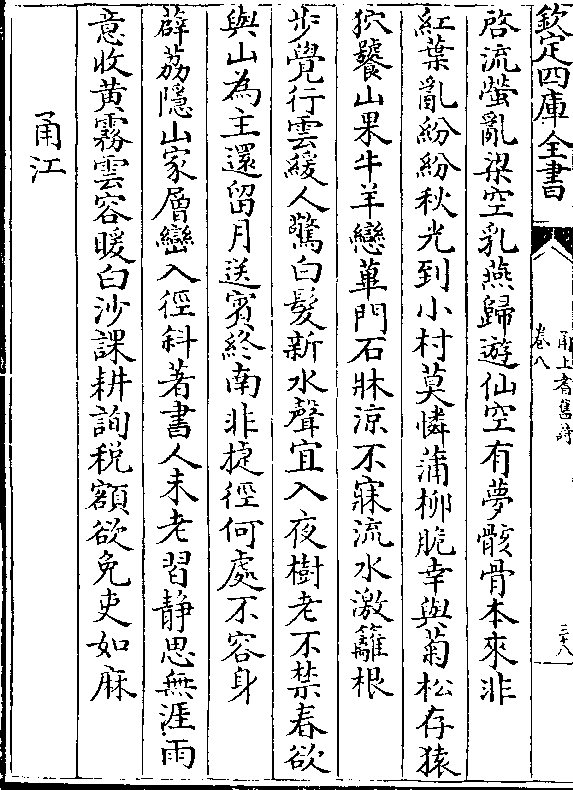 欽定四庫全書
甬上耆舊詩
卷八
三十八
啓流螢亂梁空乳燕歸遊仙空有夢骸骨本來非
紅葉亂紛紛秋光到小村莫憐蒲柳脆幸與菊松存猿
狖饕山果牛羊戀蓽門石牀涼不寐流水激籬根
步覺行雲緩人驚白髮新水聲宜入夜樹老不禁春欲
與山為主還留月送賓終南非捷徑何處不容身
薜荔隱山家層巒入徑斜著書人未老習静思無涯雨
意收黄霧雲容暖白沙課耕詢税額欲免吏如麻
甬江